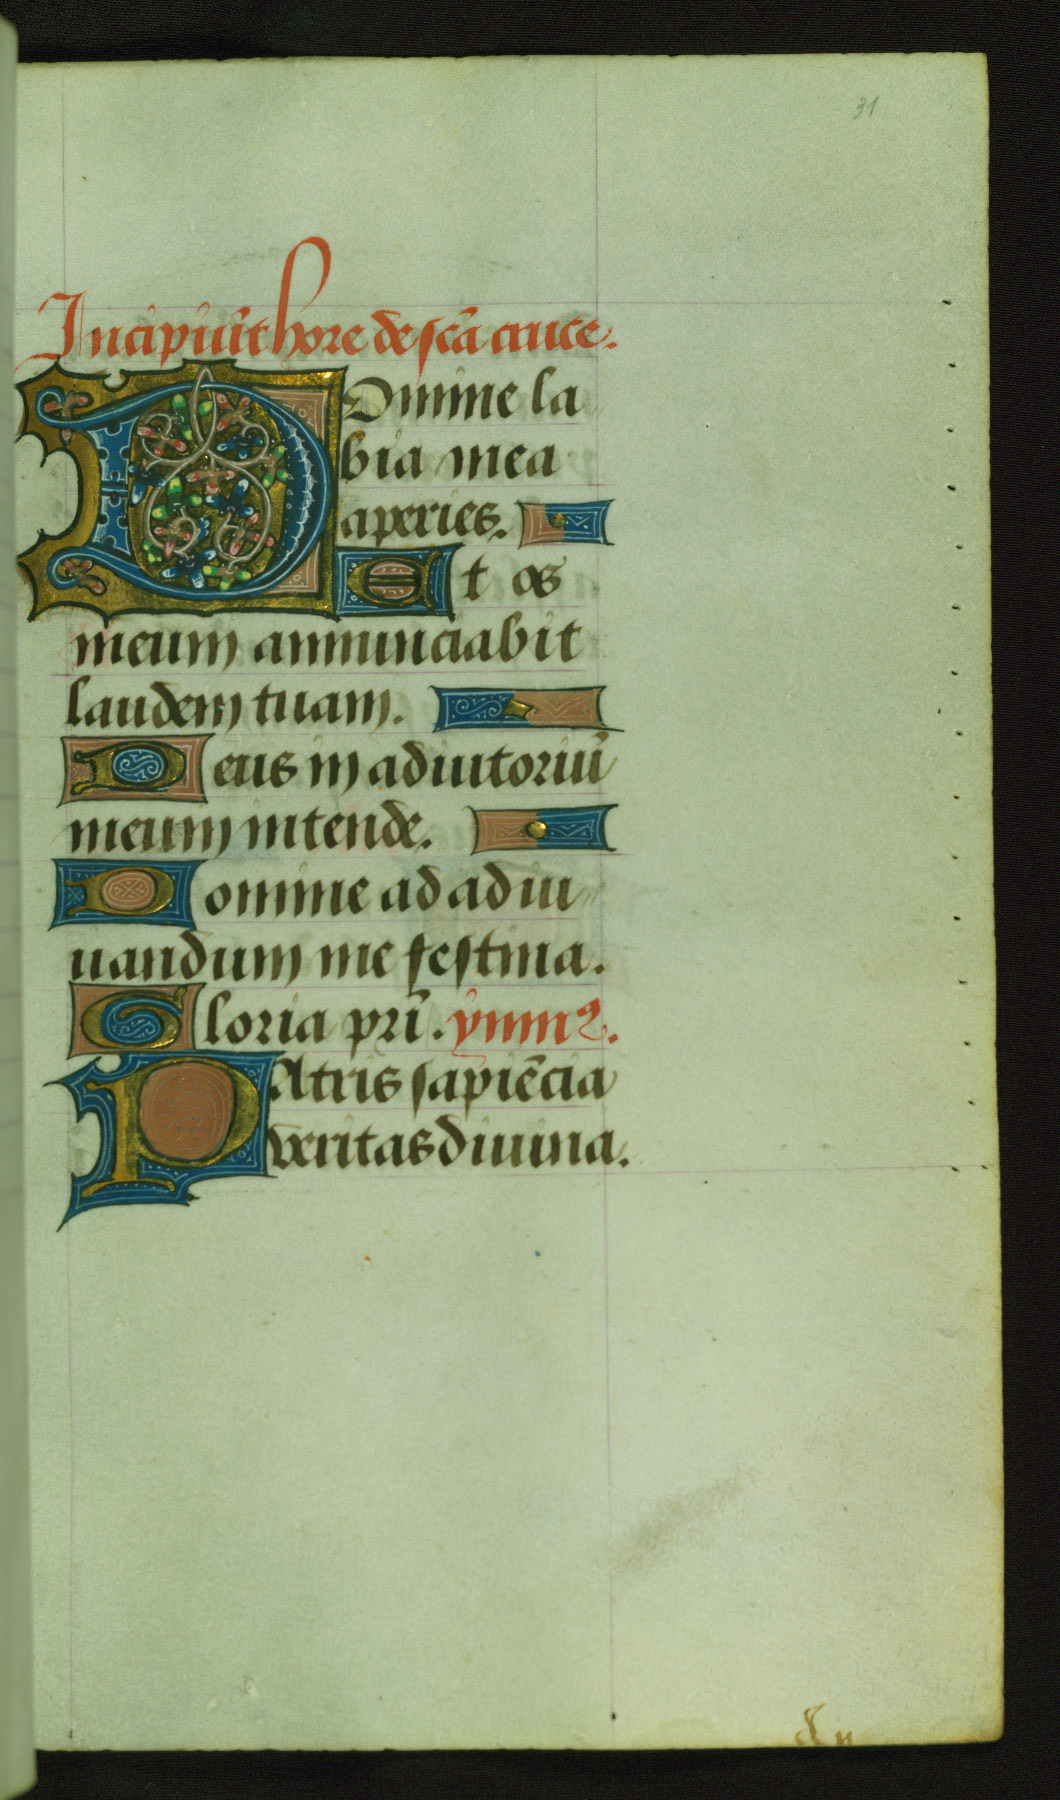 31
Incipiūt hore de scā cruce.
Domine la
bia mea
aperies.
Et os
meum annunciabit
laudem tuam.
Deus in adiutoriū
meum intende.
Domine ad adiu
uandum me festina.
Gloria pri̅. ymnꝰ.
PAtris sapiēcia
veritas diuina.